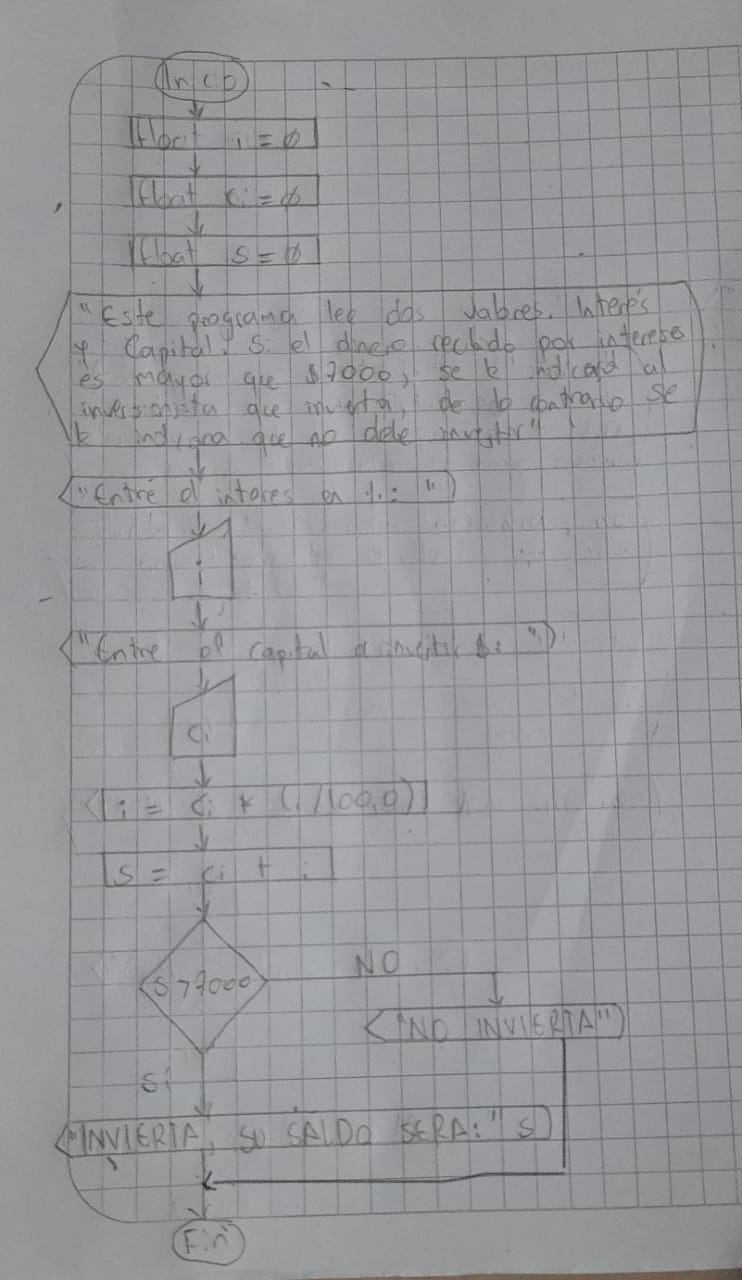 Inicio
float i = ø
float ci = ø
float s = ø
"Este programa lee dos valores. Interés
y Capital. Si el dinero recibido por intereses
es mayor que $7000, se le indicará al
inversionista que invierta, de lo contrario se
le indicara que no debe invertir"
"Entre el interes en %: "
i
"Entre el capital a invertir $: "
ci
i = ci * (i/100.0)
s = ci + i
s > 7000
NO
"NO INVIERTA"
Si
"INVIERTA, SU SALDO SERA:" s
Fin